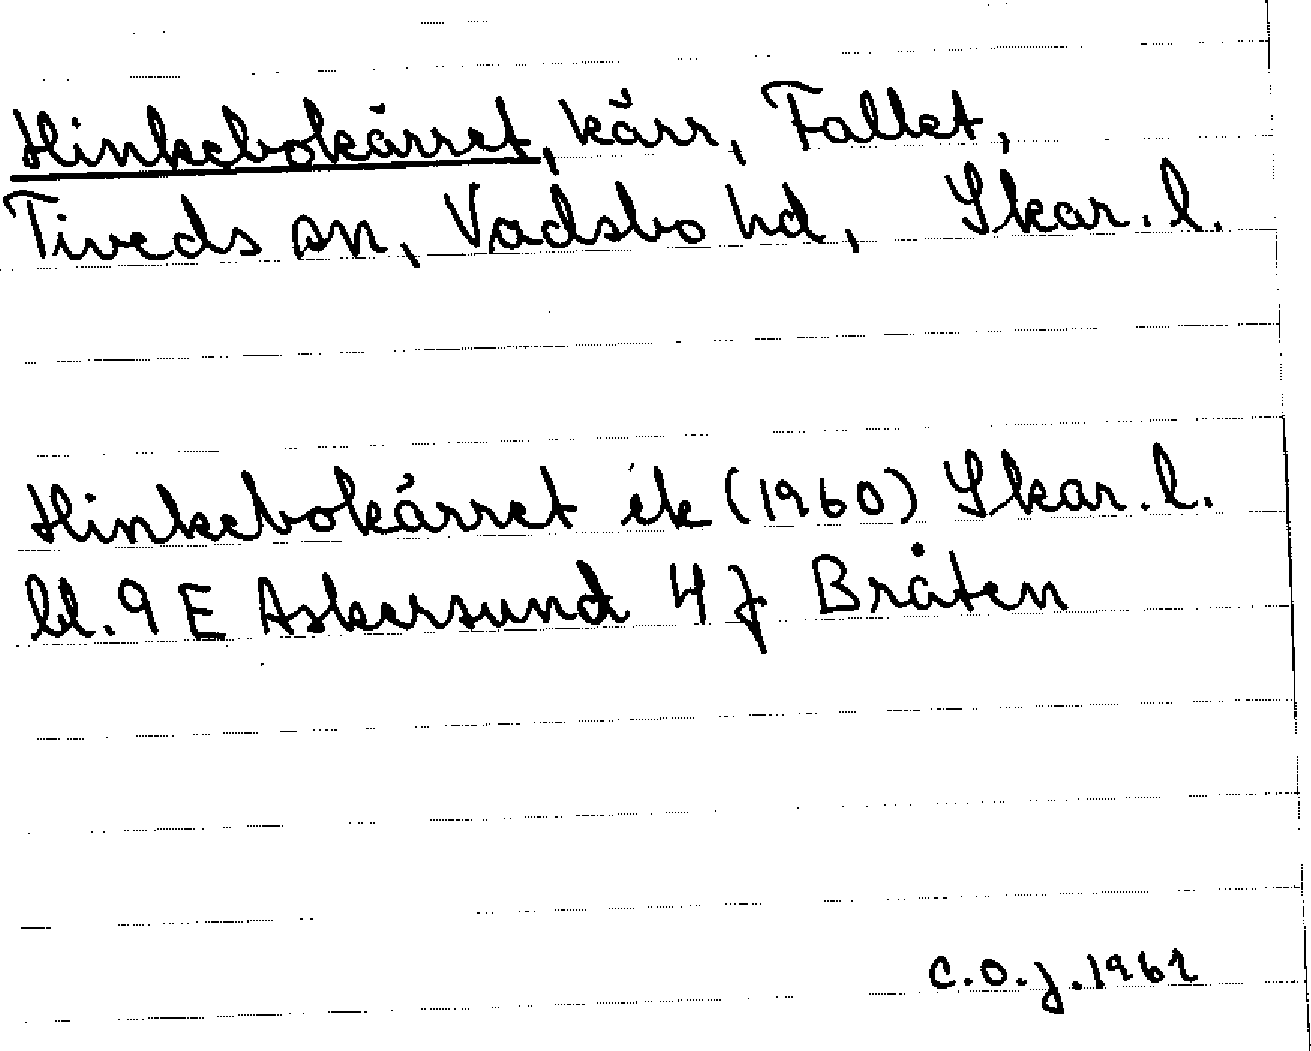 Hinkebokärret, kärr, Fallet,
Tiveds sn, Vadsbo hd, Skar. l.
Hinkebokärret ek (1960) Skar. l.
bl. 9 E Askersund 4 j Bråten
C.O.J. 1962